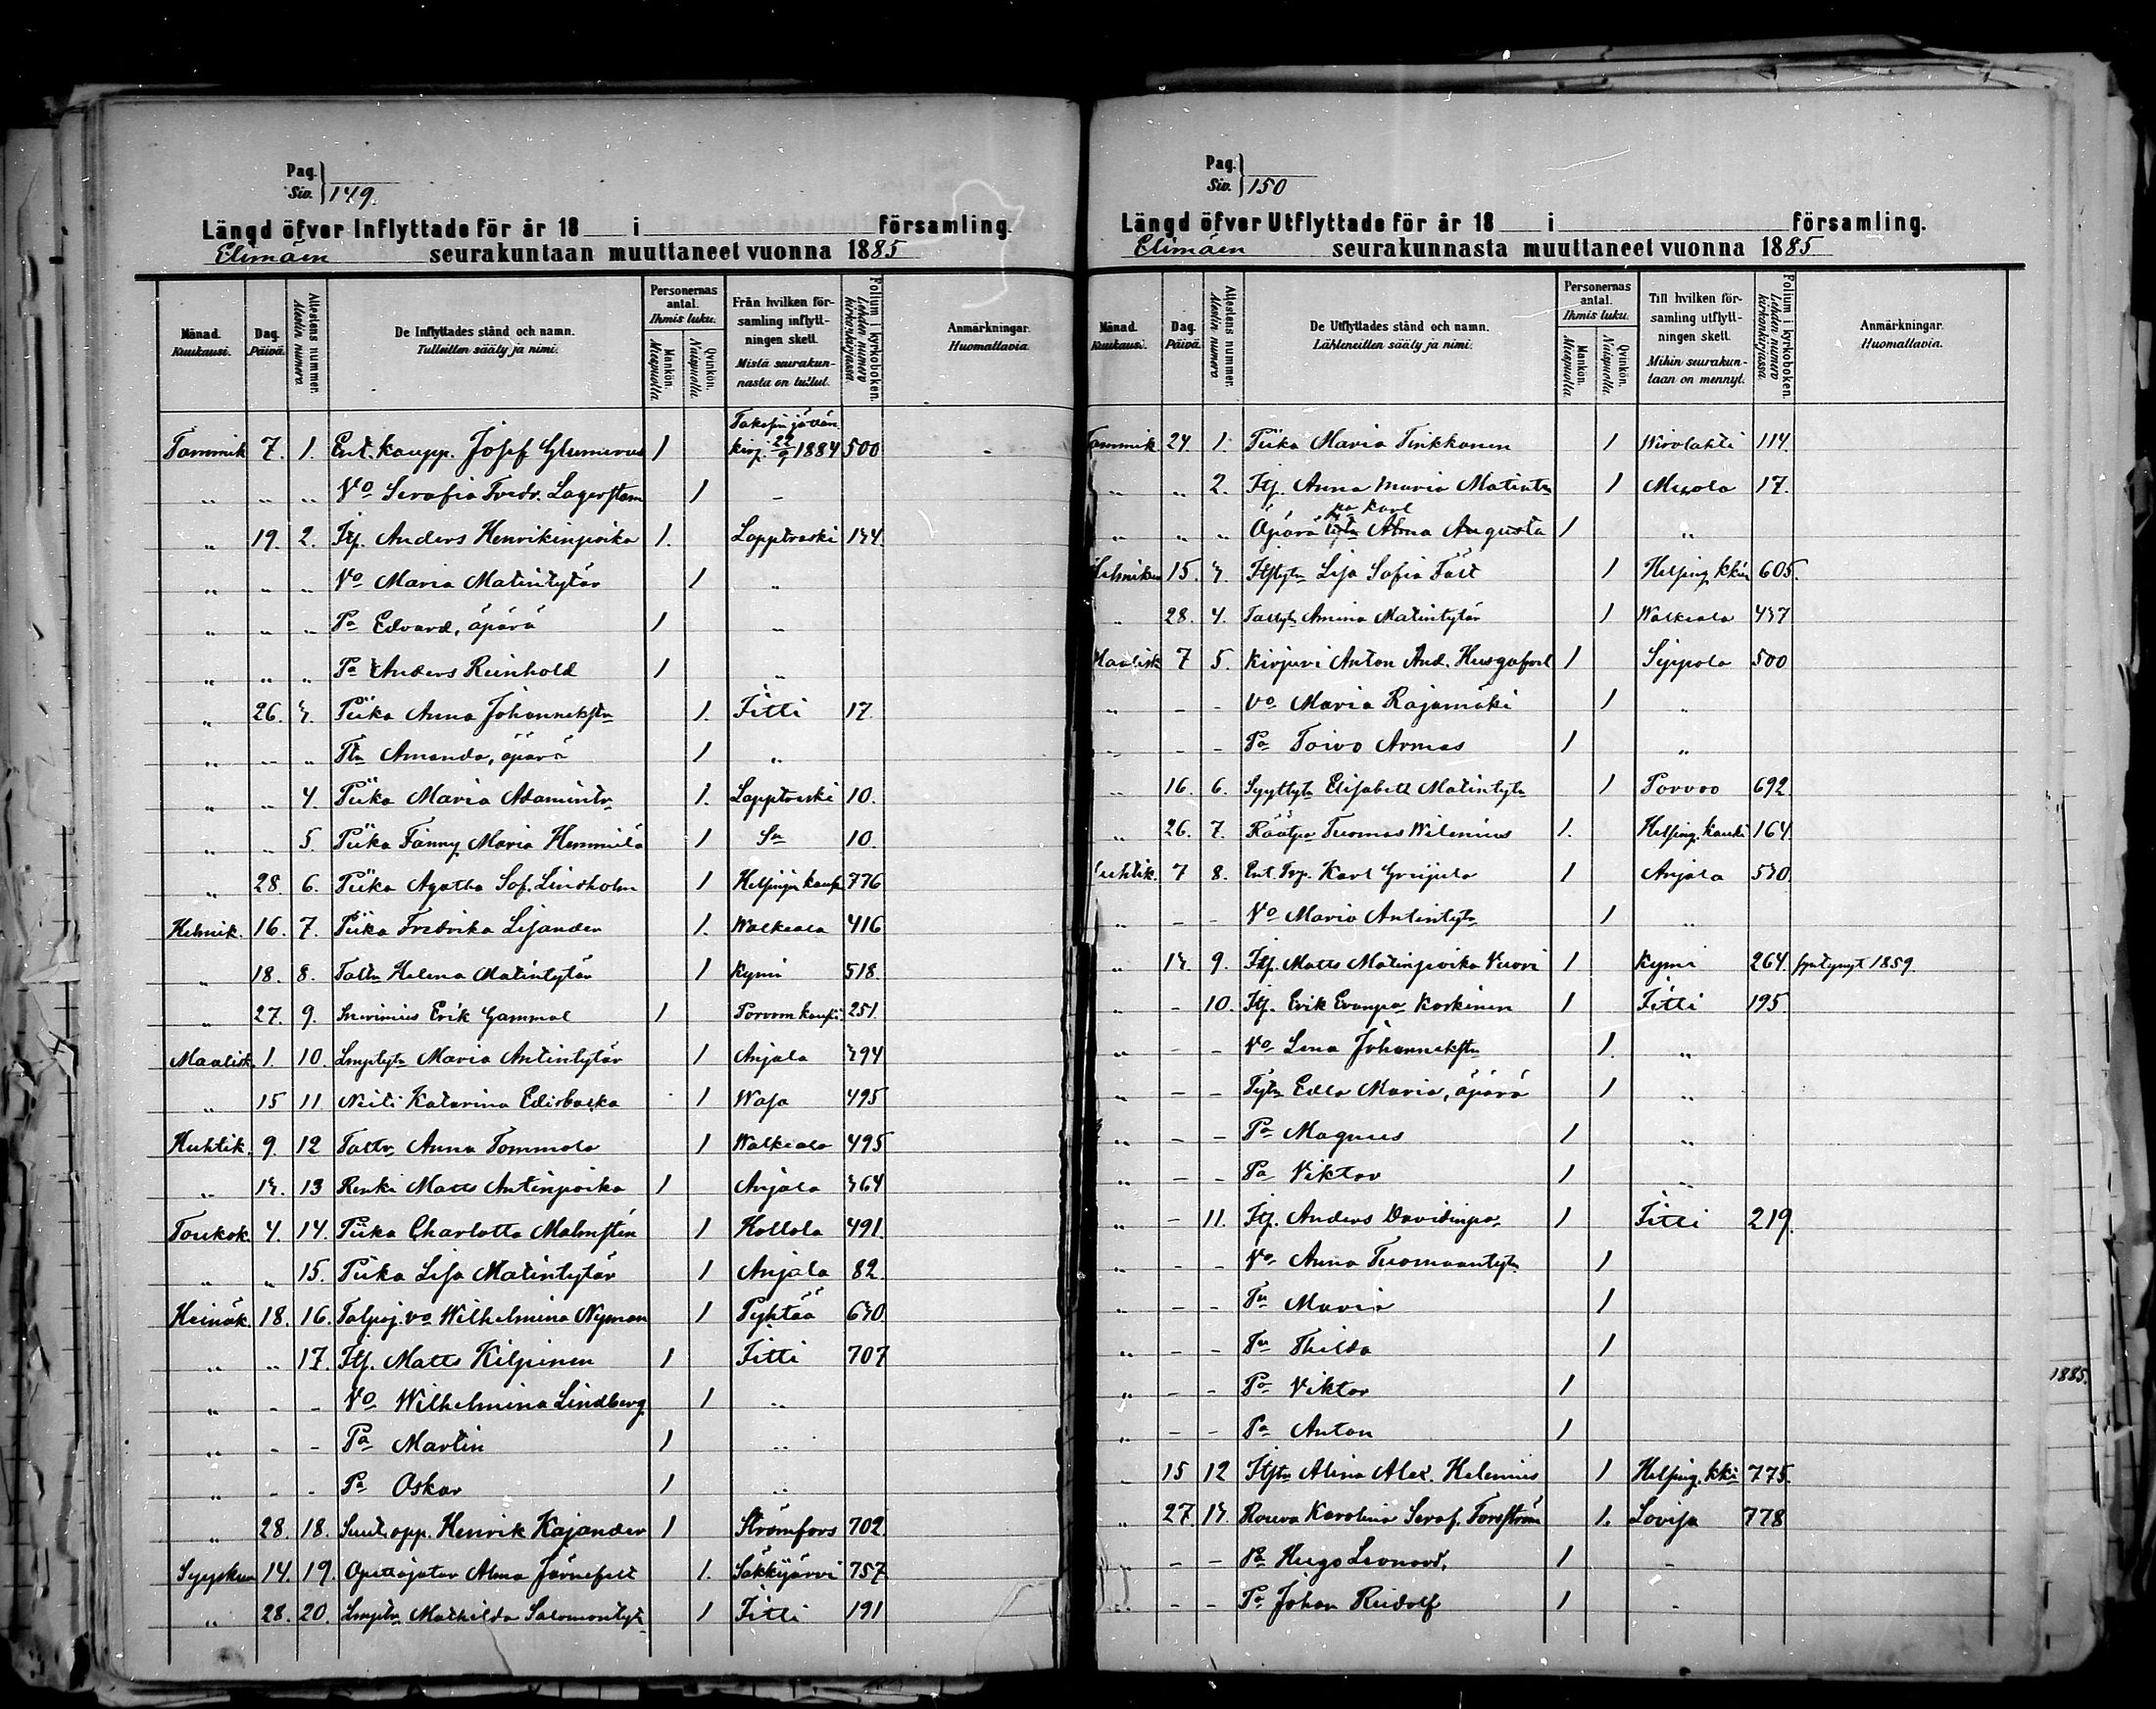 Pag.
Siv. 149.
Längd öfver Inflyttade för år 18 i församling.
Elimäen seurakuntaan muuttaneet vuonna 1885
Månad. Kuukausi.
Dag. Päivä.
Attestens nummer. Alestin numero.
De Inflyttades stånd och namn.
Tulleitten sääty ja nimi.
Personernas antal.
Ihmis luku.
Mankön. Miespuolia
Qvinkön. Naispuolia.
Från hvilken församling inflyttningen skett.
Mistä seurakunnasta on tullut.
Folium i kyrkoboken. Lehden numero kirkonkirjassa.
Anmärkningar. Huomattavia.
Tammik 7. 1. Ent. kaupp. Josef Glumerus 1 Takasin jättän. kirj. 22/9 1884 500
„ „ „ Vo Serafia Fredr. Lagerstam 1 -
„ 19. 2. Itj. Anders Henrikinpoika 1. Lapptreski 134.
„ „ „ Vo Maria Matintytär 1 „
„ „ „ Pa Edvard, äpärä 1 „
„ „ „ Pa Anders Reinhold 1 „
„ 26. 3. Piika Anna Johannekstr 1. Iitti 17.
„ „ „ Ttr Amanda, äpärä 1 „
„ „ 4. Piika Maria Adamintr 1. Lapptreski 10.
„ „ 5. Piika Fanny Maria Hemmilä 1 Sn 10.
„ 28. 6. Piika Agatha Sof. Lindholm 1 Helsingin kaup 776
Helmik. 16. 7. Piika Fredrika Lisander 1. Walkeala 416
„ 18. 8. Taltr Helena Matintytär 1 Kymi 518.
„ 27. 9. Inerimies Erik Gammal 1 Porvoon kaupi. 251.
Maalisk. 1. 10. Lmptytr Maria Antintytär 1 Anjala 394
„ 15 11 Neiti Katarina Ediobaska 1 Wasa 495
Huhtik. 9. 12 Taltr Anna Tommola 1 Walkeala 495
„ 13. 13 Renki Matts Antinpoika 1 Anjala 364
Toukok. 4. 14. Piika Charlotta Malmstén 1 Hollola 491.
„ „ 15. Piika Lisa Matintytär 1 Anjala 82.
Heinäk. 18. 16. Talpoj. vo Wilhelmina Nyman 1 Pyhtää 630
„ „ 17. Itj. Matts Kilpinen 1 Iitti 707
„ - - Vo Wilhelmina Lindberg 1 „
„ - - Pa Martin 1 „
„ - - Pa Oskar 1 „
„ 28. 18. Suut. opp. Henrik Kajander 1 Strömfors 702.
Syyskuu 14. 19. Opettajatar Alma Järnefelt 1. Säkkijärvi 757
„ 28. 20. Lmptr Mathilda Salomontyt 1 Iitti 191
Pag.
Siv. 150
Längd öfver Utflyttade för år 18 i församling.
Elimäen seurakunnasta muuttaneet vuonna 1885
Månad. Kuukausi.
Dag. Päivä.
Attestens nummer. Alestin numero
De Utflyttades stånd och namn.
Lähteneitten sääty ja nimi.
Personernas antal.
Ihmis luku.
Mankön. Miespuolia
Qvinkön. Naispuolia.
Till hvilken församling utflyttningen skett.
Mihin seurakuntaan on mennyt.
Folium i kyrkoboken. Lehden numero kirkonkirjassa.
Anmärkningar. Huomattavia.
Tammik 24. 1. Piika Maria Tirkkonen 1 Wirolahti 114.
„ „ 2. Itj. Anna Maria Matintr 1 Mäsola 17.
pa Karl
„ „ „ Äpärä tytr Alma Augusta 1 „
Helmikuu 15. 3. Itjtytr Lisa Sofia Fält 1 Helsing. kkin 605.
„ 28. 4. Taltytr Amina Matintytär 1 Walkeala 437
Maalisk 7 5. Kirjuri Anton And. Husgafvel 1 Sippola 500
„ - - Vo Maria Rajamäki 1 „
„ - - Pa Toivo Armas 1 „
„ 16. 6. Syyttytr Elisabeth Matintytr 1 Porvoo 692
„ 26. 7. Räätpa Tuomas Wilenius 1. Helsing. kauki 164
Huhtik. 7 8. Ent. Trp. Karl Greijula 1 Anjala 530.
„ - - Vo Maria Antintytr 1 „
„ 13. 9. Itj. Matts Matinpoika Vuori 1 Kymi 264. syntynyt 1859.
„ - 10. Itj. Erik Evanpa Korkinen 1 Iitti 195.
„ - - Vo Lena Johannekstr 1. „
„ - - Tytr Edla Maria, äpärä 1 „
„ - - Pa Magnus 1 „
„ - - Pa Viktor 1 „
„ - 11. Itj. Anders Davidinpa 1 Iitti 219.
„ - - Vo Anna Tuomaantytr 1
„ - - Tr Maria 1
„ - - Tr Thilda 1
„ - - Pa Viktor 1
„ - - Pa Anton 1
„ 15 12 Itjtr Alina Alex. Helenius 1 Helsing. kki 775.
„ 27. 13. Rouva Karolina Seraf. Forsström 1. Lovisa 778
„ - - Pa Hugo Leonard. 1 -
„ - - Pa Johan Reidolf 1 -
1885.